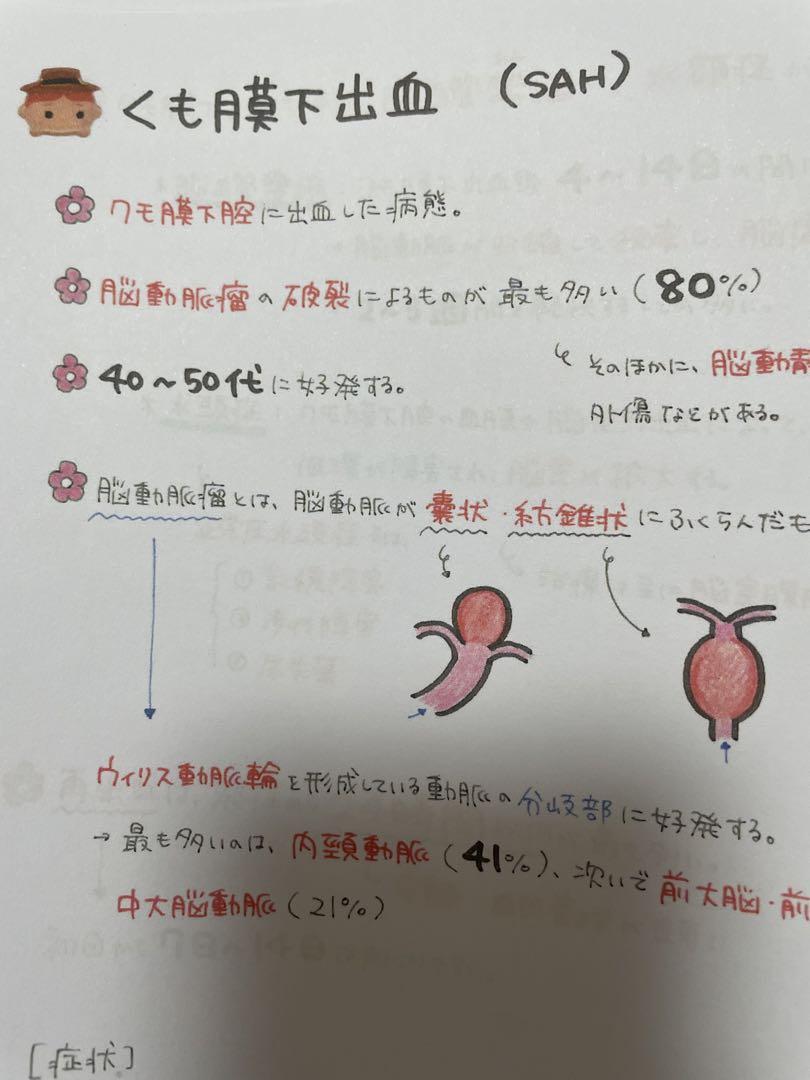 くも膜下出血 (SAH)
クモ膜下腔に出血した病態。
脳動脈瘤の破裂によるものが最も多い(80%)
そのほかに、脳動
外傷などがある。
40~50代に好発する。
脳動脈瘤とは、脳動脈が嚢状・紡錐状にふくらんだも
ウィリス動脈輪を形成している動脈の分岐部に好発する。
→ 最も多いのは、内頸動脈(41%)、次いで前大脳・前
中大脳動脈(21%)
[症状]